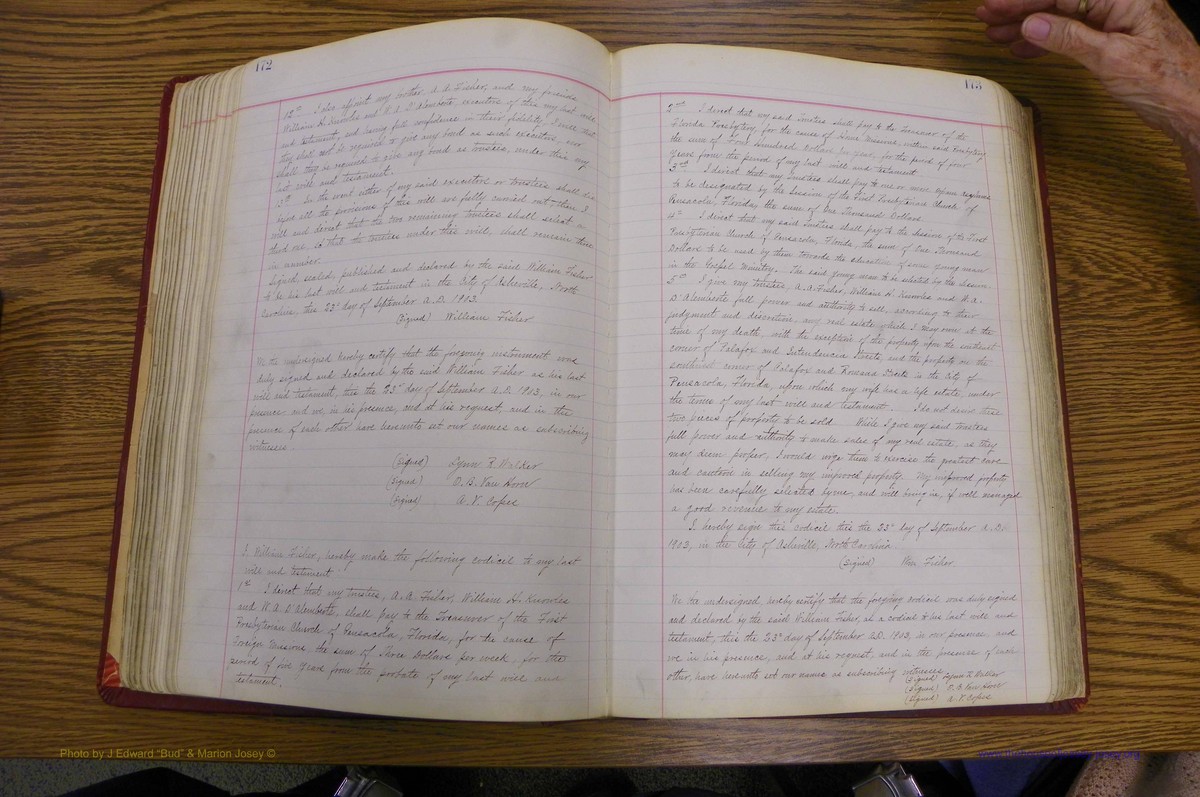 172
12th I also appoint my brother, A. A. Fisher, and my friends
William H. Knowles and W. A. D'Alemberte, executors of this my last will
and testament, and having full confidence in their fidelity, I will that
they shall not be required to give any bond as such executors, nor
shall they be required to give any bond as trustees, under this my
last will and testament.
13th In the event either of my said executors or trustees shall die
before all the provisions of this will are fully carried out, then I
will and direct that the two remaining trustees shall select a
third one, so that the trustees under this will, shall remain three
in number.
Signed, sealed, published and declared by the said William Fisher
to be his last will and testament in the City of Asheville, North
Carolina, this 23d day of September A. D. 1903.
(Signed) William Fisher
We the undersigned hereby certify that the foregoing instrument was
duly signed and declared by the said William Fisher as his last
will and testament, this the 23d day of September A. D. 1903, in our
presence and we, in his presence, and at his request, and in the
presence of each other have hereunto set our names as subscribing
witnesses.
(Signed) Lynn R. Walker
(Signed) O. B. Van Horn
(Signed) A. V. Copes
I William Fisher, hereby make the following codicil to my last
will and testament
1st I direct that my trustees, A. A. Fisher, William H. Knowles
and W. A. D'Alemberte, shall pay to the Treasurer of the First
Presbyterian Church of Pensacola, Florida, for the cause of
Foreign Missions, the sum of Three Dollars per week, for the
period of five years from the probate of my last will and
testament.
173
2nd I direct that my said trustees shall pay to the Treasurer of the
Florida Presbytery for the cause of Home Missions, within said Presbytery
the sum of Four hundred Dollars per year, for the period of four
years from the period of my last will and testament
3rd I direct that my trustees shall pay to one or more
to be designated by the Session of the First Presbyterian Church of
Pensacola, Florida, the sum of One Thousand Dollars.
4th I direct that my said trustees shall pay to the Session of the First
Presbyterian Church of Pensacola, Florida, the sum of One Thousand
Dollars to be used by them towards the education of some young man
in the Gospel Ministry. The said young man to be selected by the Session.
5th I give my trustees, A. A. Fisher, William H. Knowles and W. A.
D'Alemberte full power and authority to sell, according to their
judgment and discretion, any real estate which I may own at the
time of my death, with the exception of the property upon the
corner of Palafox and Intendencia Streets and the property on the
corner of Palafox and Romana Streets in the City of
Pensacola, Florida, upon which my wife has a life estate, under
the terms of my last will and testament. I do not desire these
two pieces of property to be sold While I give my said trustees
full power and authority to make sales of my real estate, as they
may deem proper, I would urge them to exercise the greatest care
and caution in selling my improved property. My improved property
has been carefully selected by me, and will bring in, if well managed
a good revenue to my estate.
I hereby sign this codicil this the 23d day of September A. D.
1903, in the City of Asheville, North Carolina
(Signed) Wm Fisher.
We the undersigned, hereby certify that the foregoing codicil was duly signed
and declared by the said William Fisher, as a codicil to his last will and
testament, this the 23d day of September A.D. 1903, in our presence, and
we in his presence, and at his request, and in the presence of each
other, have hereunto set our names as subscribing witnesses.
(Signed) Lynn R. Walker
(Signed) O. B. Van Horn
(Signed) A. V. Copes
Photo by J Edward "Bud" & Marion Josey ©